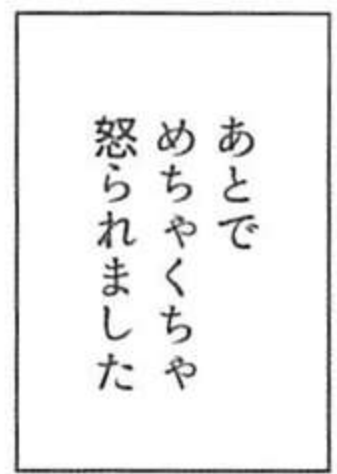 あとで
めちゃくちゃ
怒られました